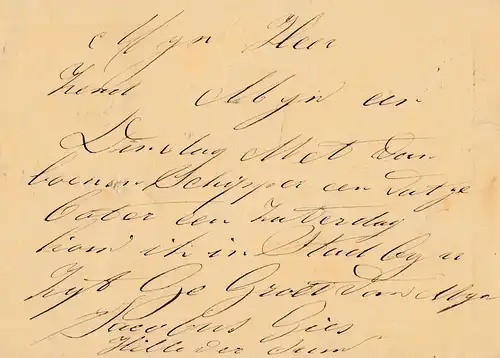 Myn Heer
Zend Myn een
Dinsdag Met dan
boenen Schipper een vatge
boter en Zaterdag
kom ik in Stad by u
Zyt Ge Groet van Myn
Jacobus Gies
Hille